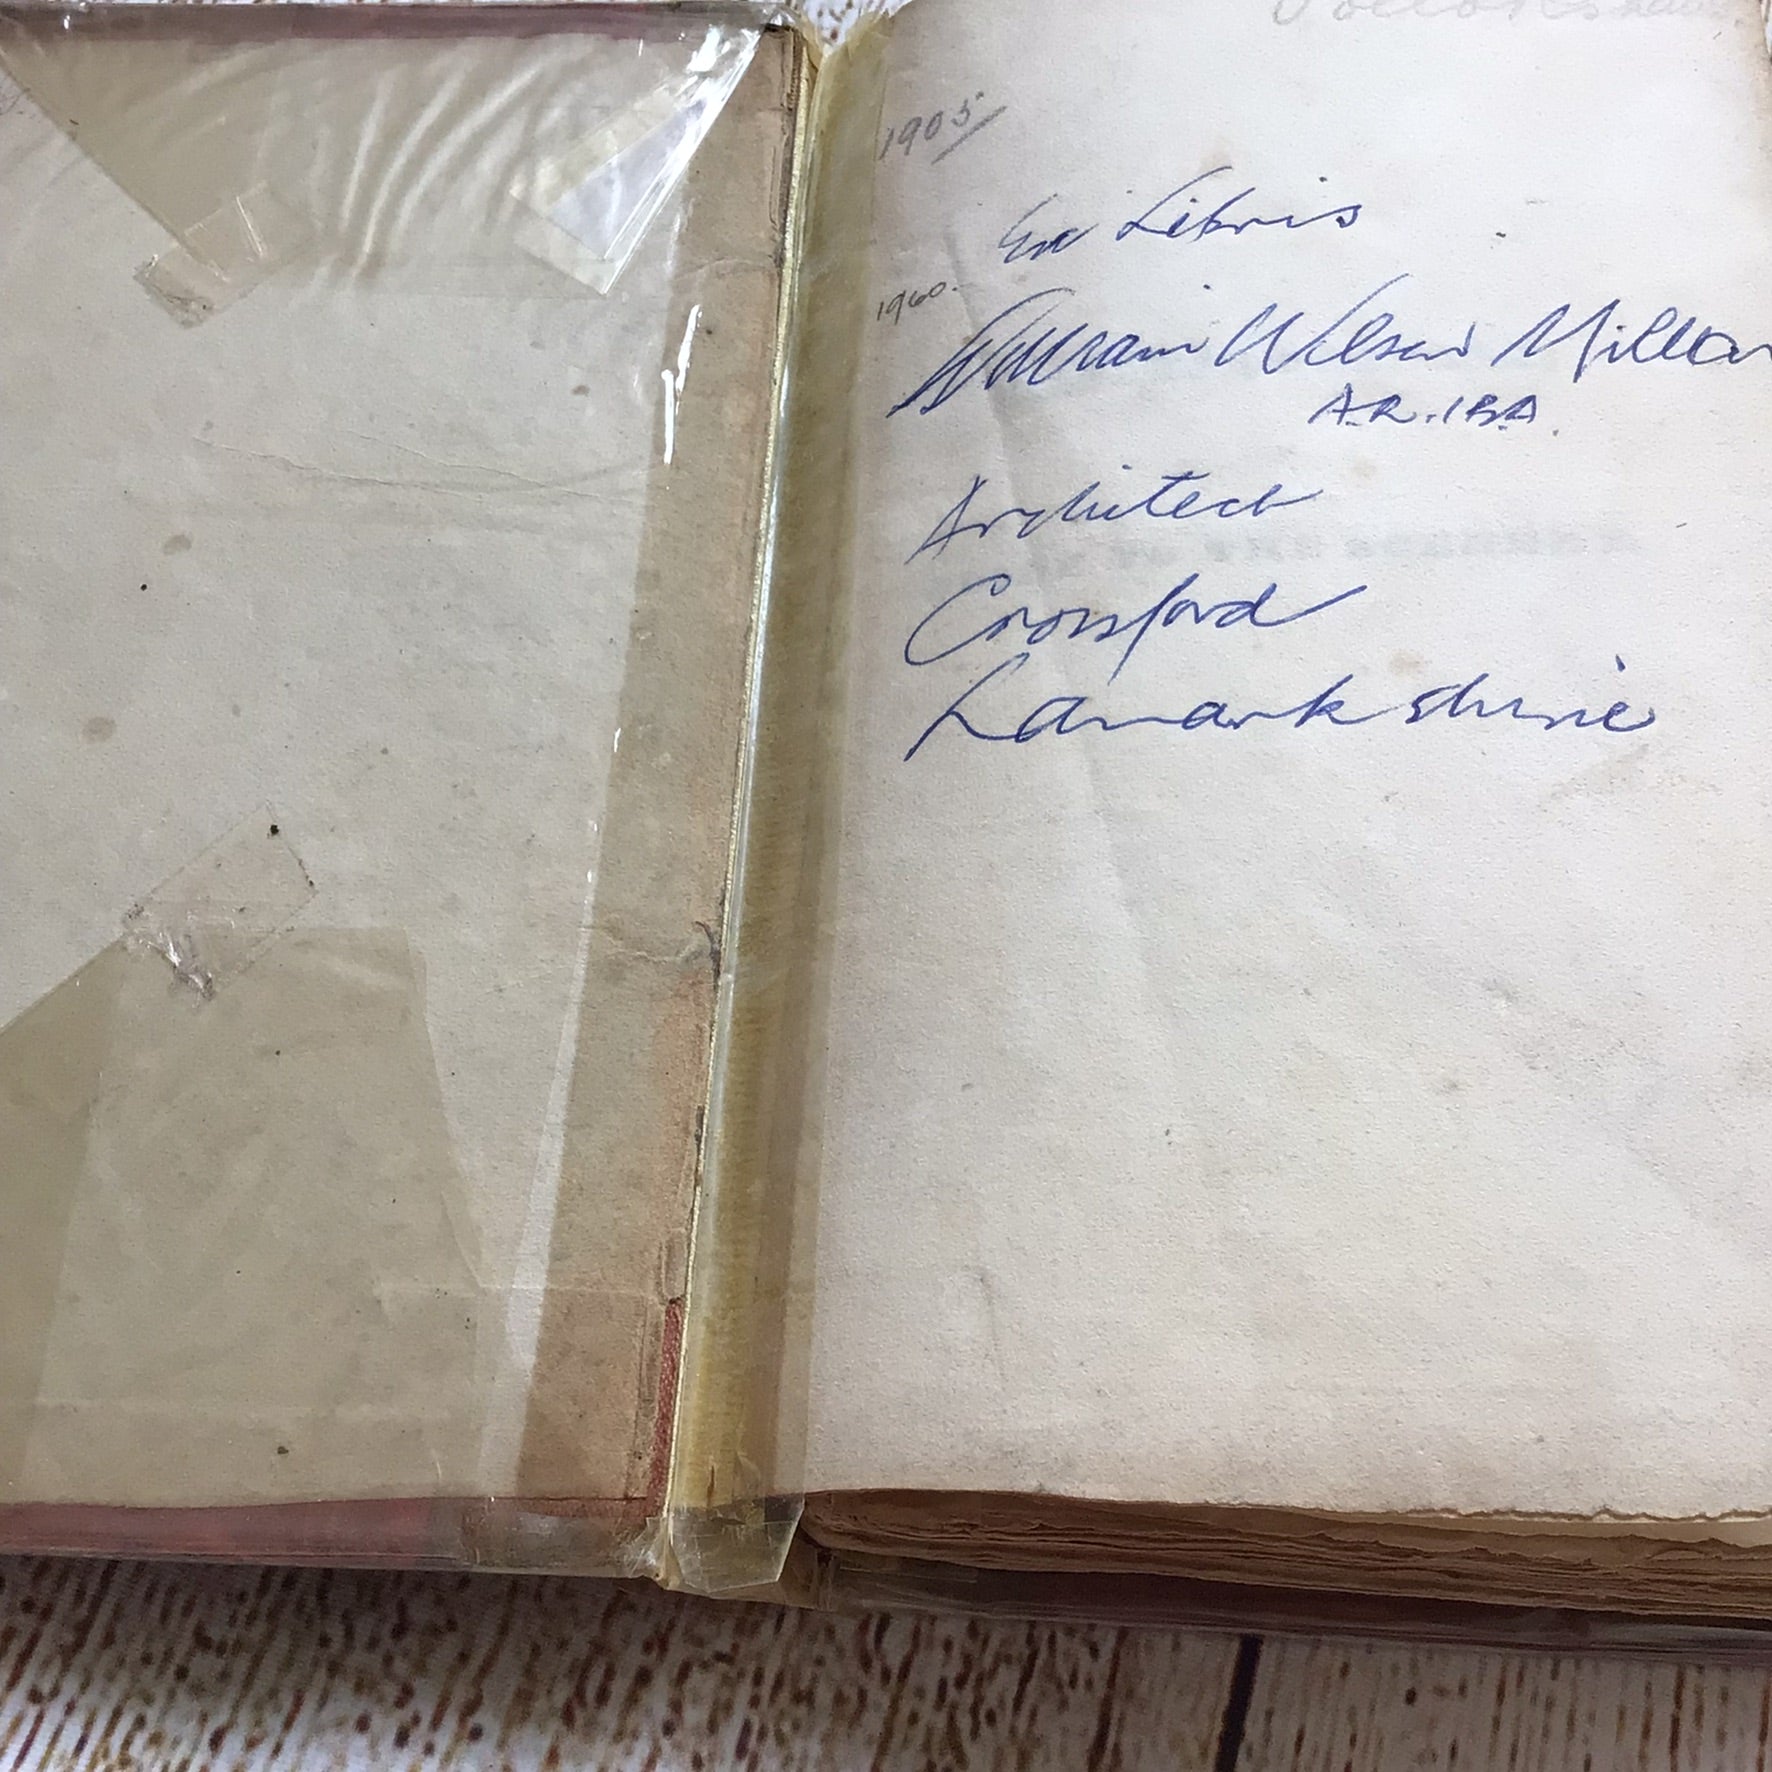 1905
Ex Libris
1960.
William Wilson Millar
A.R.IBA.
Architect
Crossford
Lanarkshire